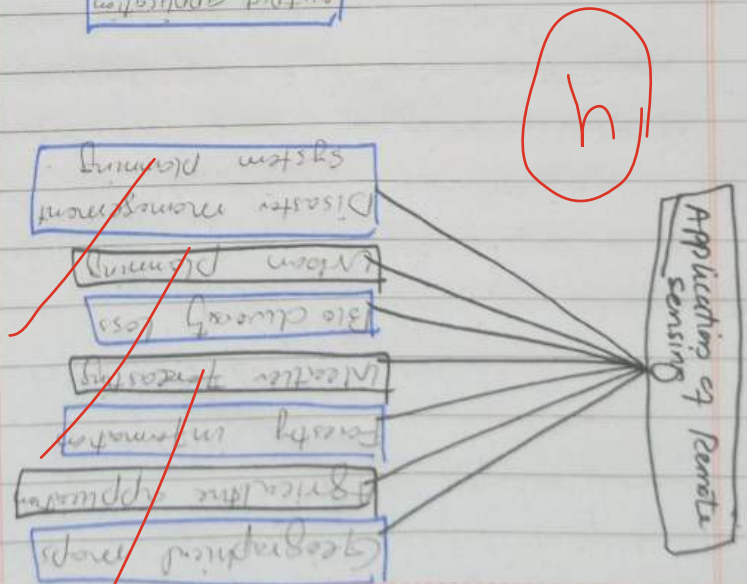 Application of Remote
sensing
Geographical maps
Agriculture application
Forestry information
Weather Forecasting
Bio diversity Loss
Urban planning
Disaster management
System planning
application